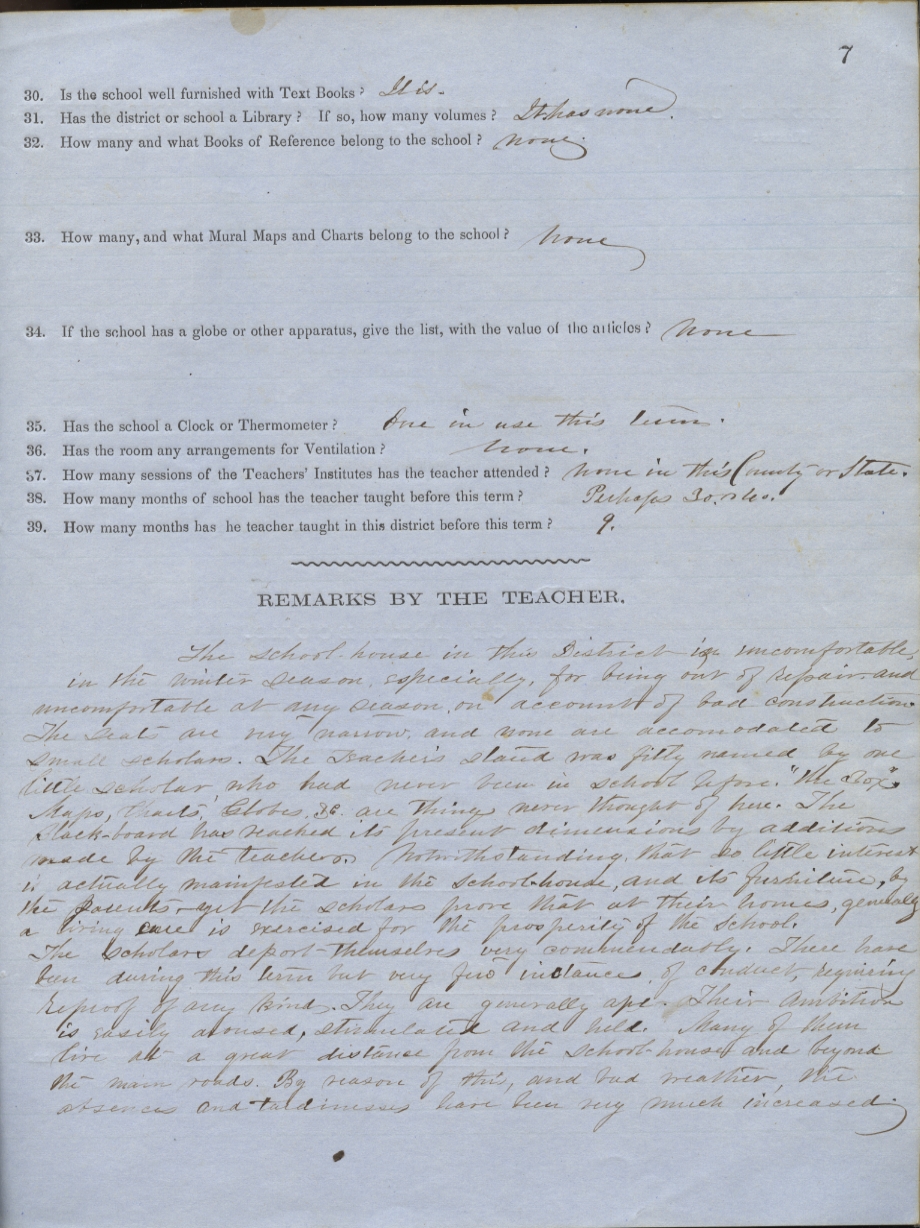 7
30. Is the school well furnished with Text Books? It is.
31. Has the district or school a Library? If so, how many volumes? It has none.
32. How many and what Books of Reference belong to the school? none
33. How many, and what Mural Maps and Charts belong to the school? None
34. If the school has a globe or other apparatus, give the list, with the value of the articles? None
35. Has the school a Clock or Thermometer? One in use this term.
36. Has the room any arrangements for Ventilation? None.
37. How many sessions of the Teachers' Institutes has the teacher attended? none in this County or State.
38. How many months of school has the teacher taught before this term? Perhaps 30 mo.
39. How many months has he teacher taught in this district before this term? 9.
REMARKS BY THE TEACHER.
The school-house in this District is uncomfortable,
in the winter season especially, for being out of repair and
uncomfortable at any season, on account of bad construction.
The seats are very narrow, and none are accomodated to
small scholars. The teacher's stand was fitly named by one
little scholar who had never been in school before. "the Box".
Maps, Charts, Globes, &c. are things never thought of here. The
black-board has reached its present dimensions by additions
made by the teachers. Notwithstanding, that so little interest
is actually manifested in the school-house, and its furniture, by
the parents-yet the scholars prove that at their homes, generally
a living care is exercised for the prosperity of the School.
The scholars deport-themselves very commendably. There have
been during this term but very few instances of conduct, requiring
reproof of any kind. They are generally apt. Their Ambition
is easily aroused, stimulated and held. Many of them
live at a great distance from the school-house, and beyond
the main roads. By reason of this, and bad weather, the
absences and tardinesses have been very much increased.